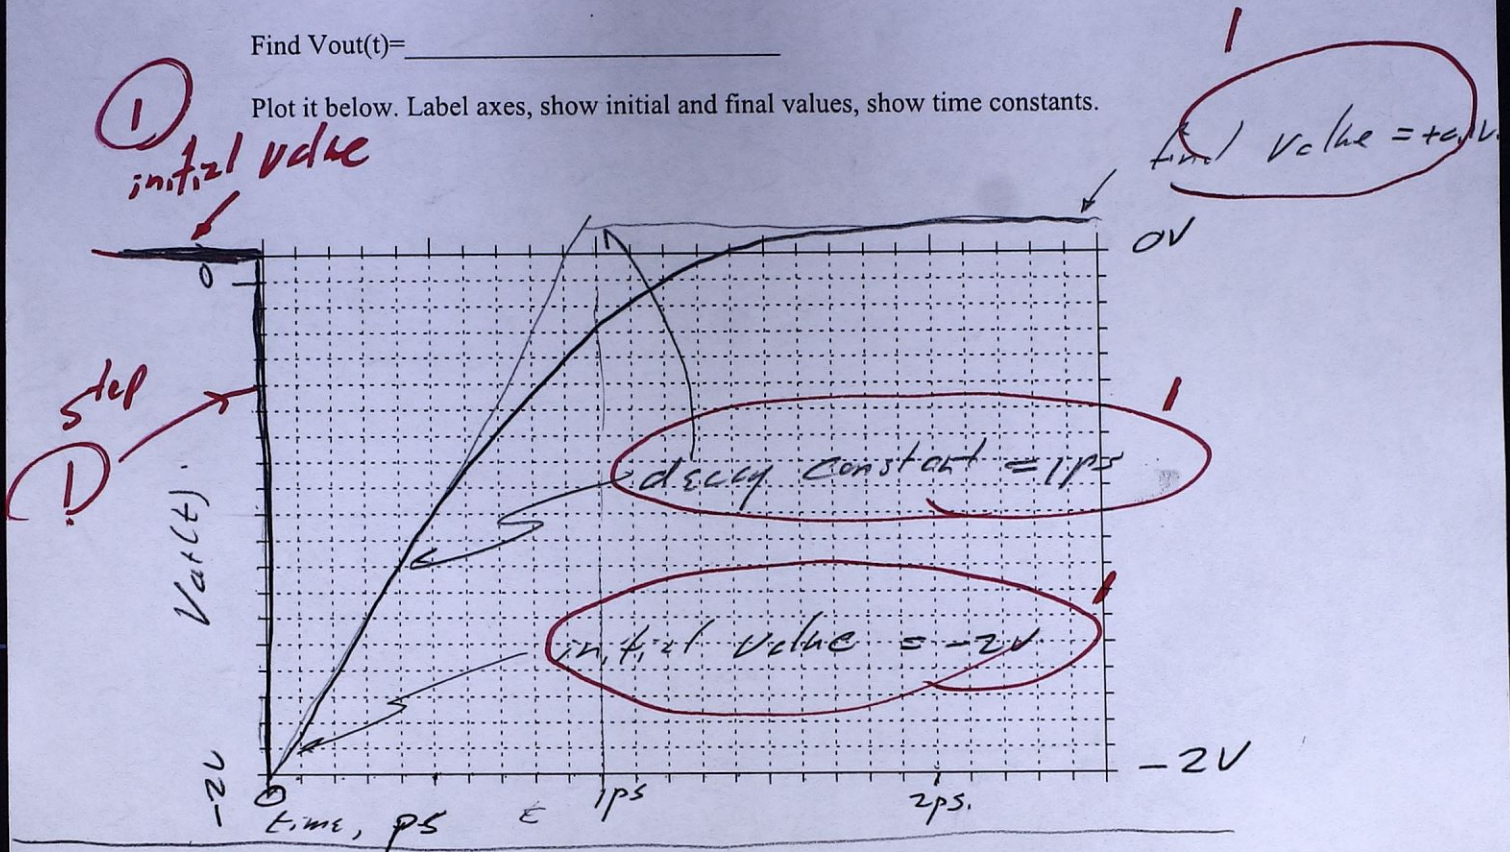 Find Vout(t)=
1
1
Plot it below. Label axes, show initial and final values, show time constants.
initial value
final value =
0V
0
step
1
1
decay constant = 1ps
Vout(t)
1
initial value = -2V
-2V
-2V
0
1ps
2ps.
time, ps
t